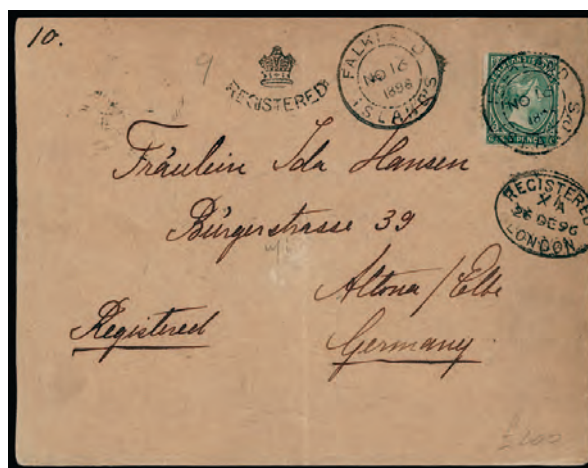 10.
9
REGISTERED
FALKLAND
NO 16
1896
ISLANDS
NO 16
REGISTERED
XA
26 DE 96
LONDON
Fräulein Ida Hansen
Bürgerstrasse 39
Altona / Elbe
Registered
Germany.